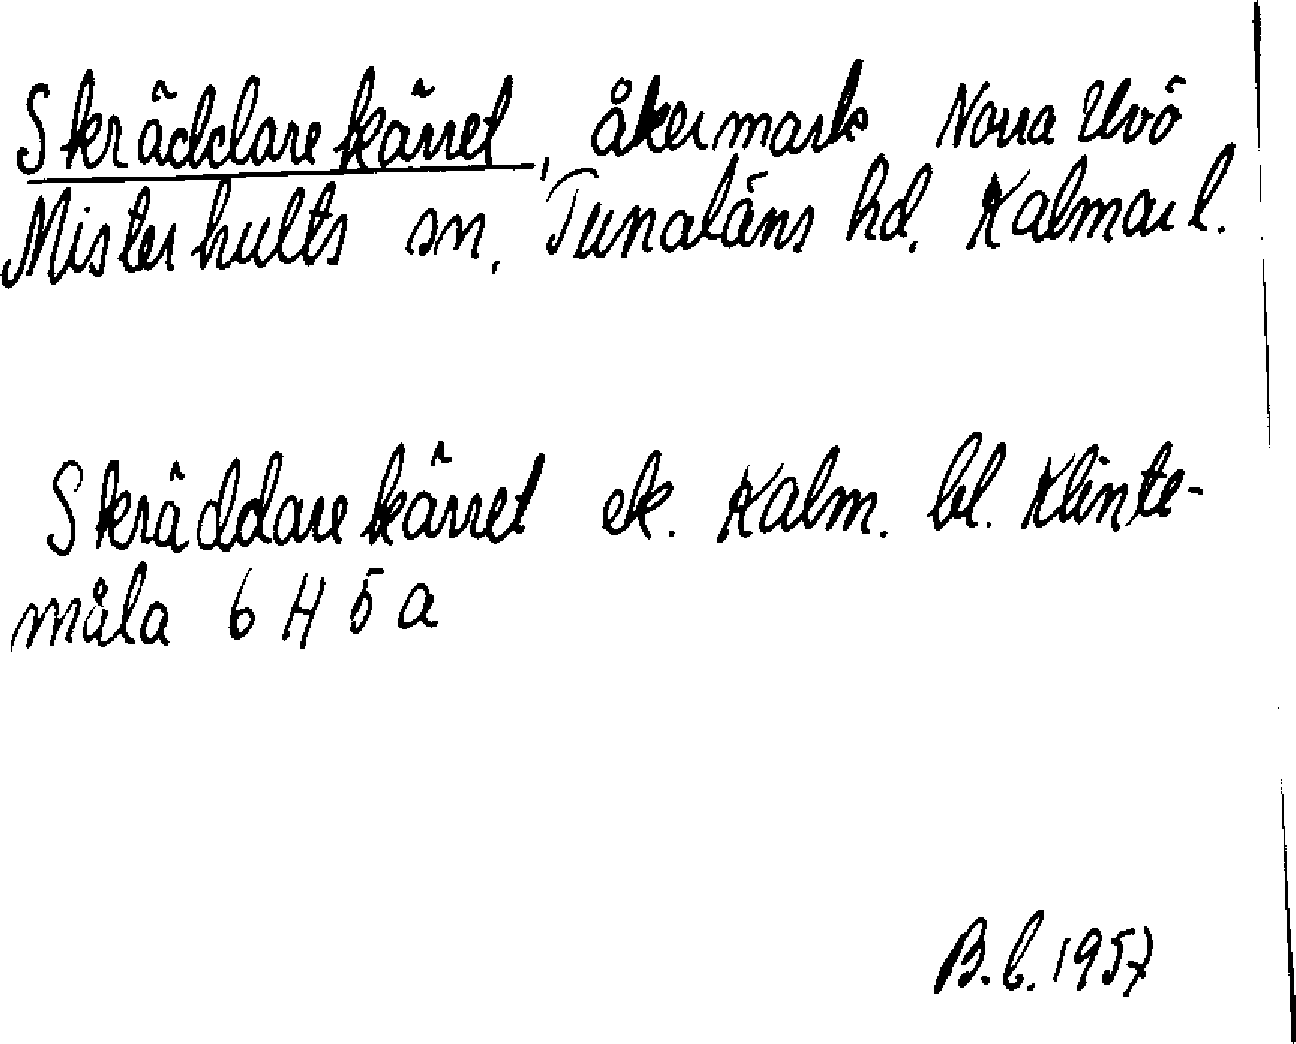 Skräddarekärret, åkermark Norra Uvö
Misterhults sn. Tunaläns hd. Kalmar l.
Skräddarekärret ek. Kalm. bl. Klinte-
måla 6 H 5 a
B.b. 1957